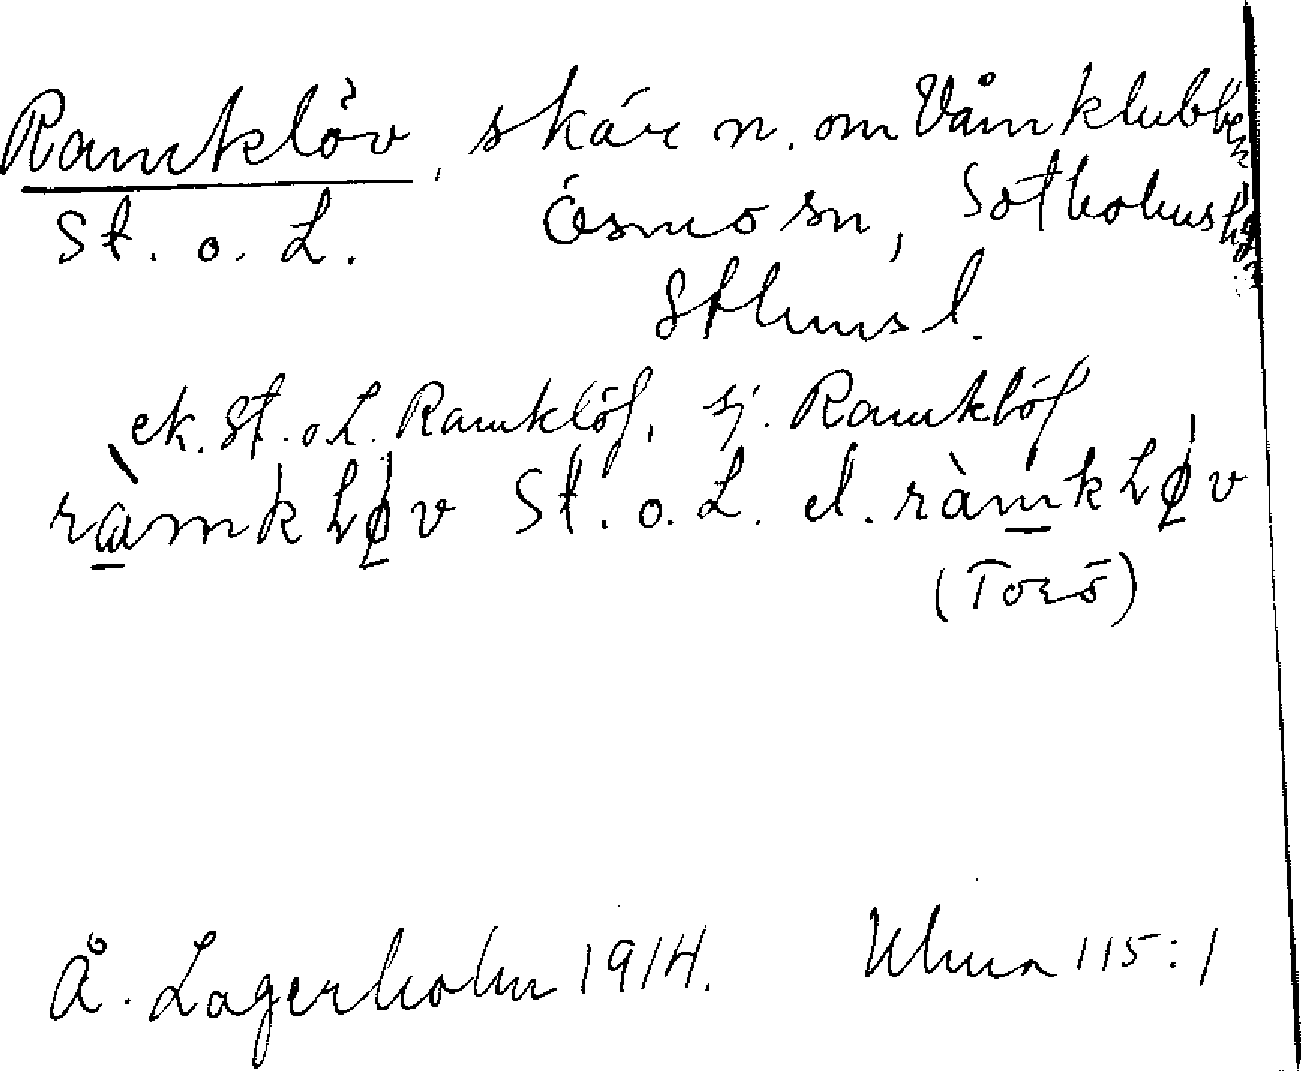 Ramklöv, skär n. om Vämklubben
St. o. L. Ösmo sn, Sotholms hd
Sthlms l.
ek. St. o L. Ramklöf, sj. Ramklöf
ràmkLø̨v St. o. L. el. ràmkLø̨v
(Torö)
Å. Lagerholm 1914. Uhma 115:1